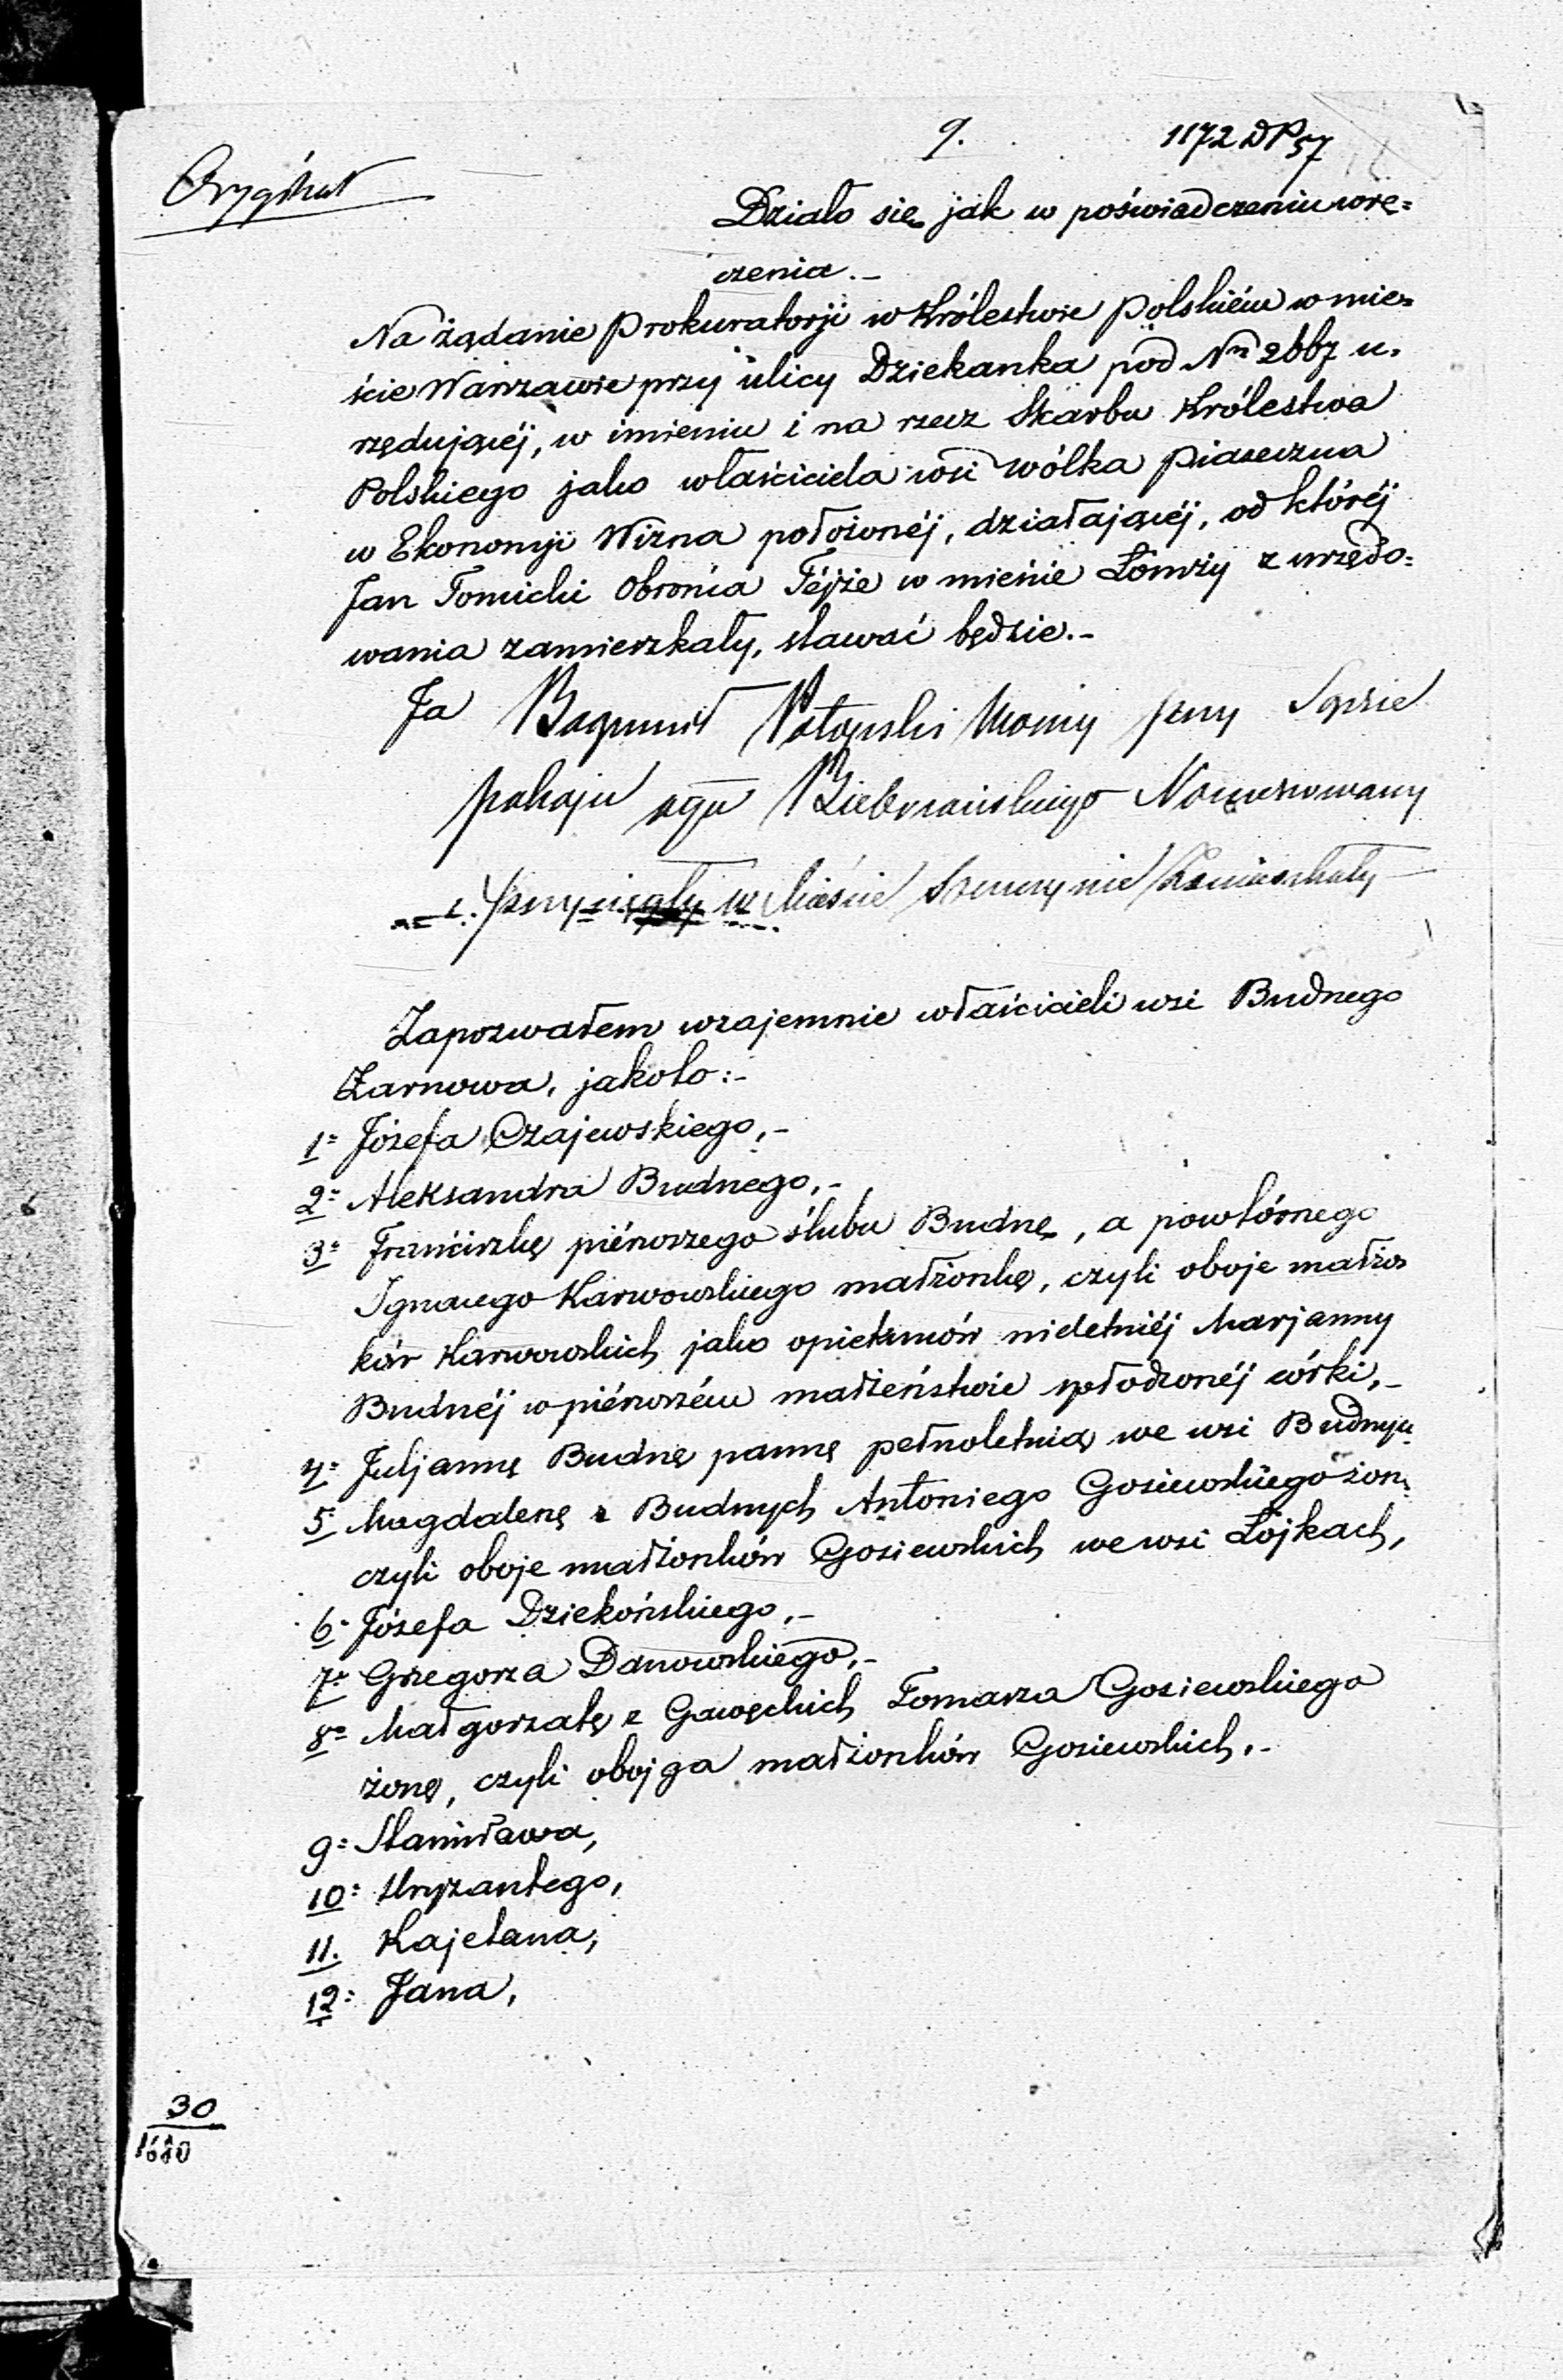 9.
1172 DP 57
Orygінał
Działo się jak w poświadczeniu wrę=
czenia.-
Na żądanie Prokuratorji w Królestwie Polskiém w mie=
ście Warszawie przy ulicy Dziekanka pod Nr 2667 u=
rzędującéj, w imieniu i na rzecz Skarbu Królestwa
Polskiego jako właściciela wsi Wólka Piaseczna
w Ekonomji Wizna położonéj, działającéj, od któréj
Jan Tomicki Obrońca Téjże w mieście Łomży z urzędo=
wania zamieszkały, stawać będzie.-
Ja Bogumił Woźny przy Sądzie
pokoju ogu Biebrzańskiego
i przysięgły w Mieście Szczuczynie Zamieszkały
Zapozwałem wzajemnie właścicieli wsi Budnego
Żarnowa, jakoto:-
1= Józefa Czajewskiego,-
2= Aleksandra Budnego,-
3= Franciszkę piérwszego ślubu Budnę, a powtórnego
Ignacego Karwowskiego małżonkę, czyli oboje małżon
ków Karwowskich jako opiekunów nieletniéj Marjanny
Budnéj w piérwszém małżeństwie spłodzonéj córki,-
4= Juljannę Budnę pannę pełnoletnią we wsi Budnym
5= Magdalenę z Budnych Antoniego Gosiewskiego żonę
czyli oboje małżonków Gosiewskich we wsi Łojkach,
6= Józefa Dziekońskiego,-
7= Grzegorza Danowskiego,-
8= Małgorzatę z Gawęckich Tomasza Gosiewskiego
żonę, czyli obojga małżonków Gosiewskich,-
9= Stanisława,
10= Chryzantego,
11. Kajetana,
12= Jana,
30
1680